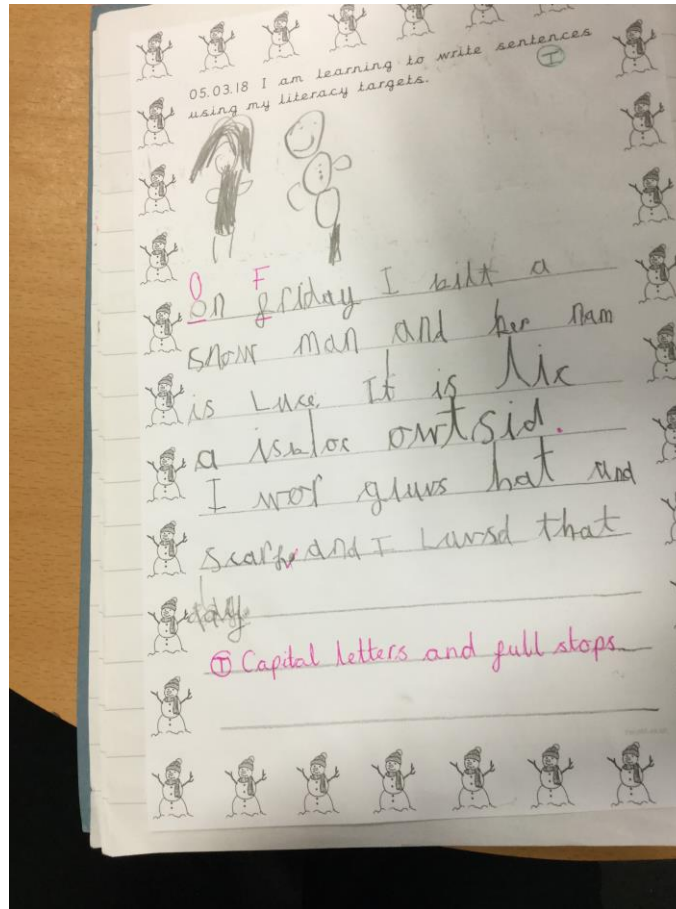 05.03.18 I am learning to write sentences
using my literacy targets.
T
O F
on friday I bilt a
snow man and her nam
is Luce. It is lic
a isbloc owtsid.
I wor gluvs hat and
scarf and I Luvsd that
day.
T Capital letters and full stops